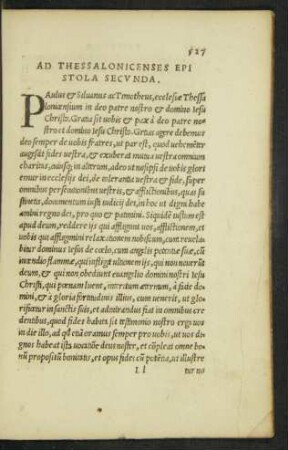 527
AD THESSALONICENSES EPI
STOLA SECVNDA.
PAulus & Siluanus ac Timotheus, ecclesiæ Thessa
lonicensium in deo patre nostro & domino Iesu
Christo. Gratia sit uobis & pax à deo patre no-
stro et domino Iesu Christo. Gratias agere debemus
deo semper de uobis fratres, ut par est, quod uehemẽter
augescit fides uestra, & exuberat mutua uestra omnium
charitas, cuiusq; in alterum, adeo ut nos ipsi de uobis glori
emur in ecclesijs dei, de tolerantia uestra & fide, super
omnibus persecutionibus uestris, & afflictionibus, quas su
stinetis, documentum iusti iudicij dei, in hoc ut digni habe
amini regno dei, pro quo & patimini. Siquidẽ iustum est
apud deum, reddere ijs qui affligunt uos, afflictionem, et
uobis qui affligimini relaxationem nobiscum, cum reuela
bitur dominus Iesus de cœlo, cum angelis potentiæ suæ, cũ
incendio flammæ, qui infligat ultionem ijs, qui non nouerũt
deum, & qui non obediunt euangelio domini nostri Iesu
Christi, qui pœnam luent, interitum æternum, à facie do
mini, & à gloria fortitudinis illius, cum uenerit, ut glo
rificetur in sanctis suis, et admirandus fiat in omnibus cre
dentibus, quod fides habita sit testimonio nostro erga uos
in die illo, ad qd etiã oramus semper pro uobis, ut uos di
gnos habeat ista uocatiõe deus noster, et cõpleat omne bo
nũ propositũ bonitatis, et opus fidei cũ potẽtia, ut illustre
l l
tur no